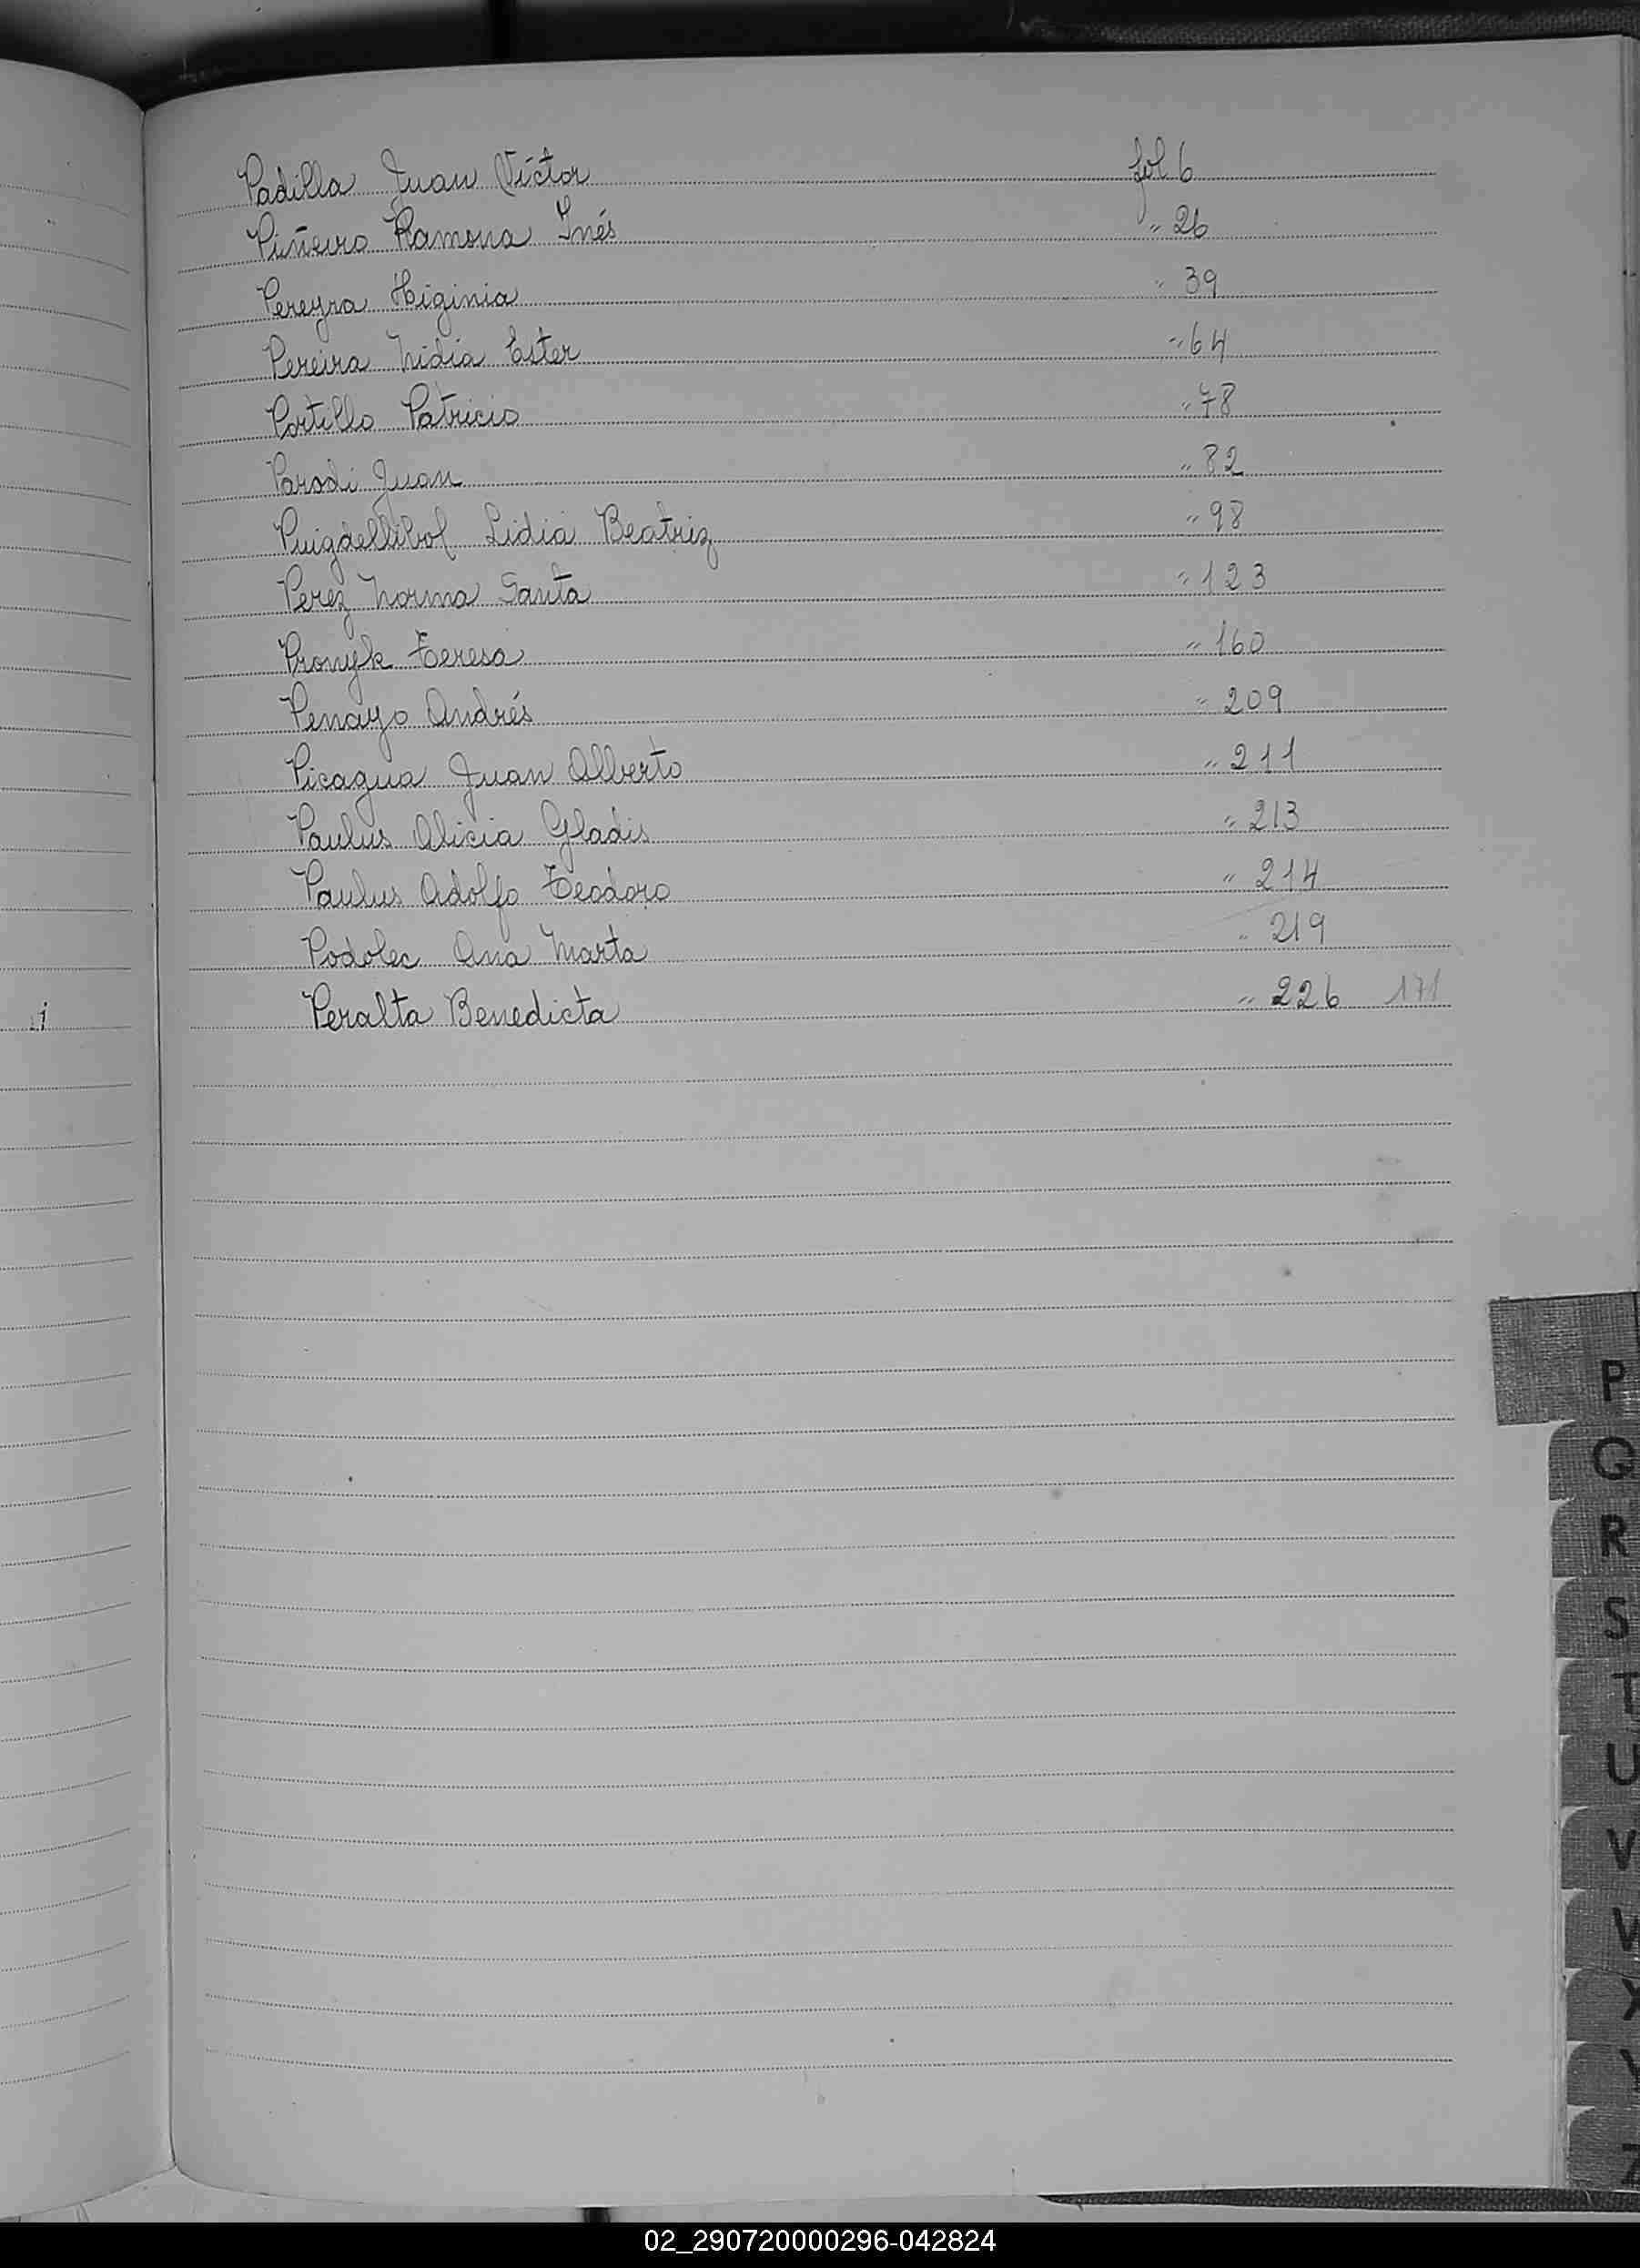 Padilla Juan Víctor fol 6
Piñeiro Ramona Inés " 26
Pereyra Higinia " 39
Pereira Nidia Ester " 64
Portillo Patricio " 78
Parodi Juan " 82
Puigdellibol Lidia Beatriz " 98
Perez Norma Santa " 123
Pronyk Teresa " 160
Penayo Andrés " 209
Picagua Juan Alberto " 211
Paulus Alicia Gladis " 213
Paulus Adolfo Teodoro " 214
Podolec Ana Marta " 219
Peralta Benedicta " 226 171
i
P
Q
R
S
T
U
V
W
X
Y
Z
02_290720000296-042824